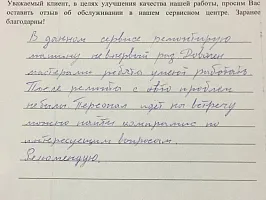 Уважаемый клиент, в целях улучшения качества нашей работы, просим Вас
оставить отзыв об обслуживании в нашем сервисном центре. Заранее
благодарны!
В данном сервисе ремонтирую
машину не первый раз. Доволен
мастерами ребята умеют работать
После ремонта с авто проблем
не было. Персонал идёт на встречу
можно найти компромис по
интересующим вопросам.
Рекомендую.